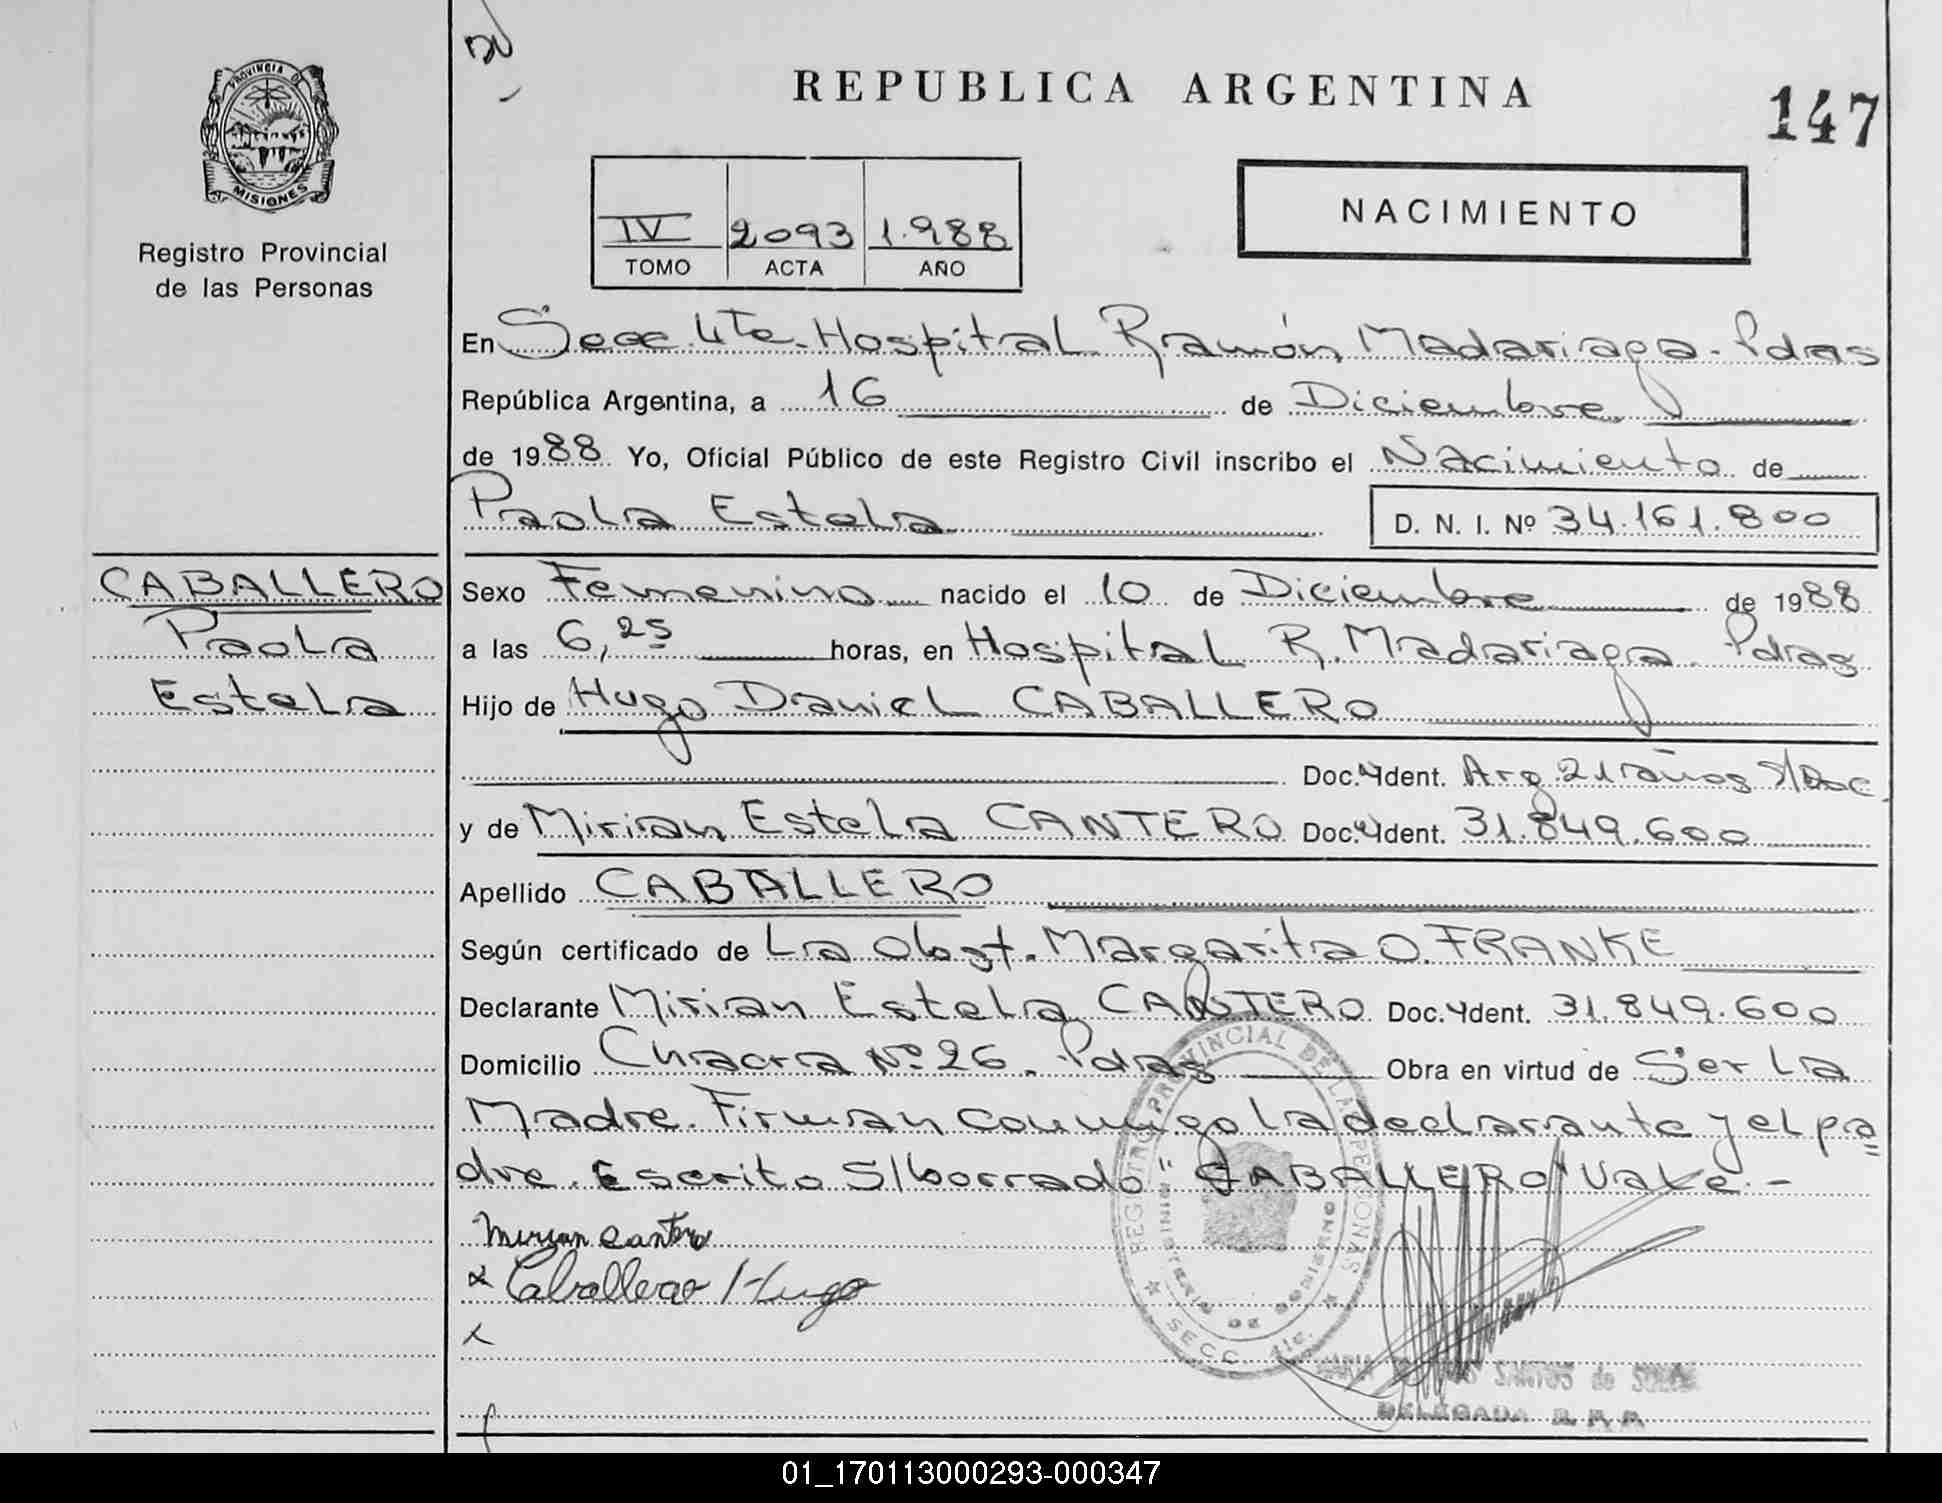 PROVINCIA DE
MISIONES
Registro Provincial
de las Personas
REPUBLICA ARGENTINA
147
IV 2093 1.988
TOMO ACTA AÑO
NACIMIENTO
En Secc 4ta. Hospital Ramón Madariaga - Pdas
República Argentina, a 16 de Diciembre
de 1988 Yo, Oficial Público de este Registro Civil inscribo el Nacimiento de
Paola Estela
D. N. I. Nº 34.161.800
CABALLERO
Paola
Estela
Sexo Femenino nacido el 10 de Diciembre de 1988
a las 6,25 horas, en Hospital R. Madariaga. Pdas
Hijo de Hugo Daniel CABALLERO
Doc. Ydent. Arg. 21 años S/Doc
y de Mirian Estela CANTERO Doc. Ydent. 31.849.600
Apellido CABALLERO
Según certificado de La Obst. Margarita O. FRANKE
Declarante Mirian Estela CANTERO Doc. Ydent. 31.849.600
Domicilio Chacra Nº 26. Pdas Obra en virtud de Ser la
Madre. Firman conmigo la declarante y el pa=
dre. Escrito S/borrado "CABALLERO" Vale. -
Miryan Cantero
x Caballero Hugo
x
REGISTRO PROVINCIAL DE LAS PERSONAS
MINISTERIO DE GOBIERNO
SECC. 4ta.
SANTOS de
DELEGADA R. P. P.
01_170113000293-000347